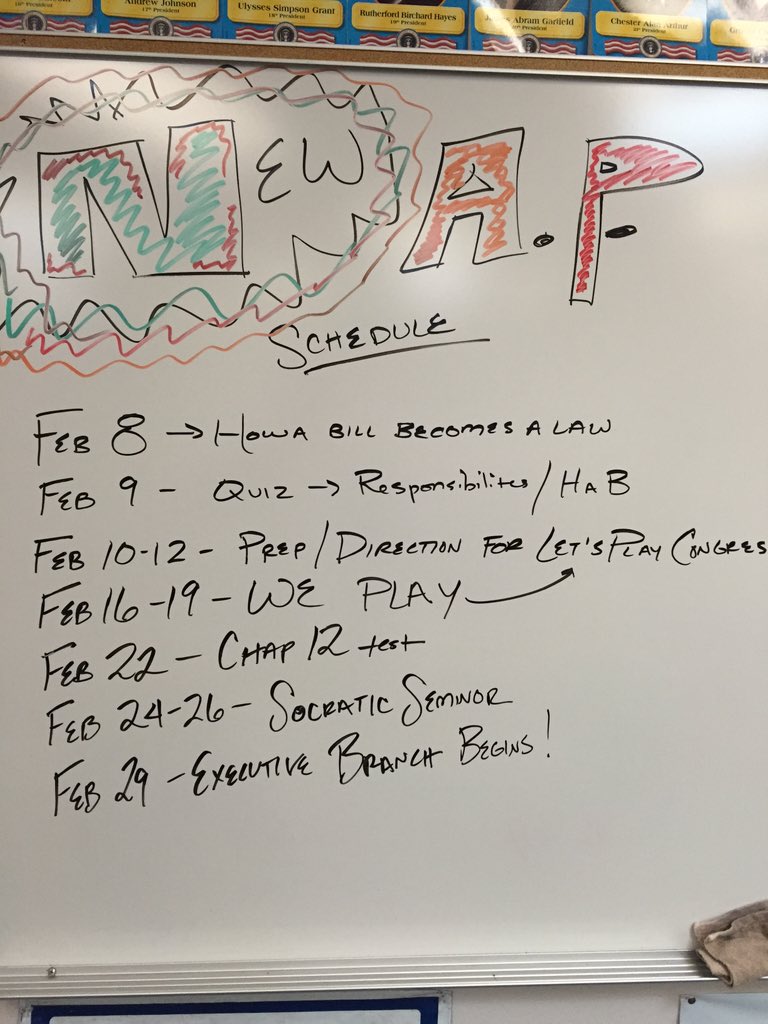 Andrew Johnson
17th President
Ulysses Simpson Grant
18th President
Rutherford Birchard Hayes
19th President
James Abram Garfield
20th President
Chester Alan Arthur
21st President
NEW A.P.
SCHEDULE
FEB 8 → HOW A BILL BECOMES A LAW
FEB 9 - QUIZ → Responsibilites/HaB
FEB 10-12 - PREP/DIRECTION FOR LET'S PLAY CONGRES
FEB 16-19 - WE PLAY
FEB 22 - CHAP 12 test
FEB 24-26 - SOCRATIC SEMINOR
FEB 29 - EXECUTIVE BRANCH BEGINS!